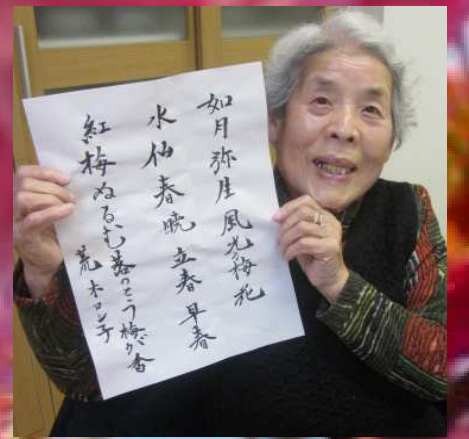 如月 弥生 風光 梅花
水仙 春暁 立春 早春
紅梅 ぬるむ 蕗のとう 梅が香
荒木